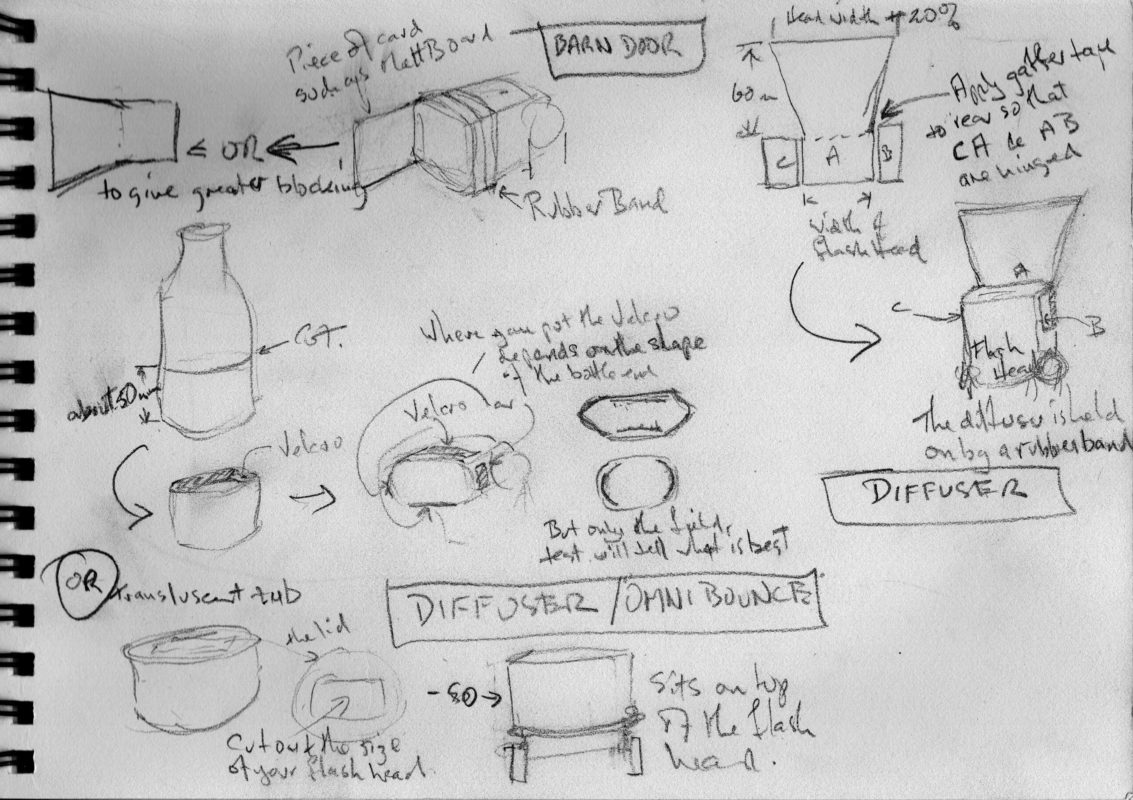 Piece of card
such as MattBoard
BARN DOOR
Head width + 20%
60m
Apply gaffer tape
to rear so that
CA & AB
are hinged
C
A
B
≤ OR
to give greater blocking
Rubber Band
width of
flash Head
A
C
B
Flash
Head
The diffuser is held
on by a rubber band
DIFFUSER
CUT.
about 50m
Velcro
Where you put the Velcro
depends on the shape
of the bottle end
Velcro
But only the field
test will tell what is best
OR
Transluscent tub
DIFFUSER / OMNIBOUNCE
the lid
- SO →
Cut out the size
of your flash head.
Sits on top
of the flash
head.